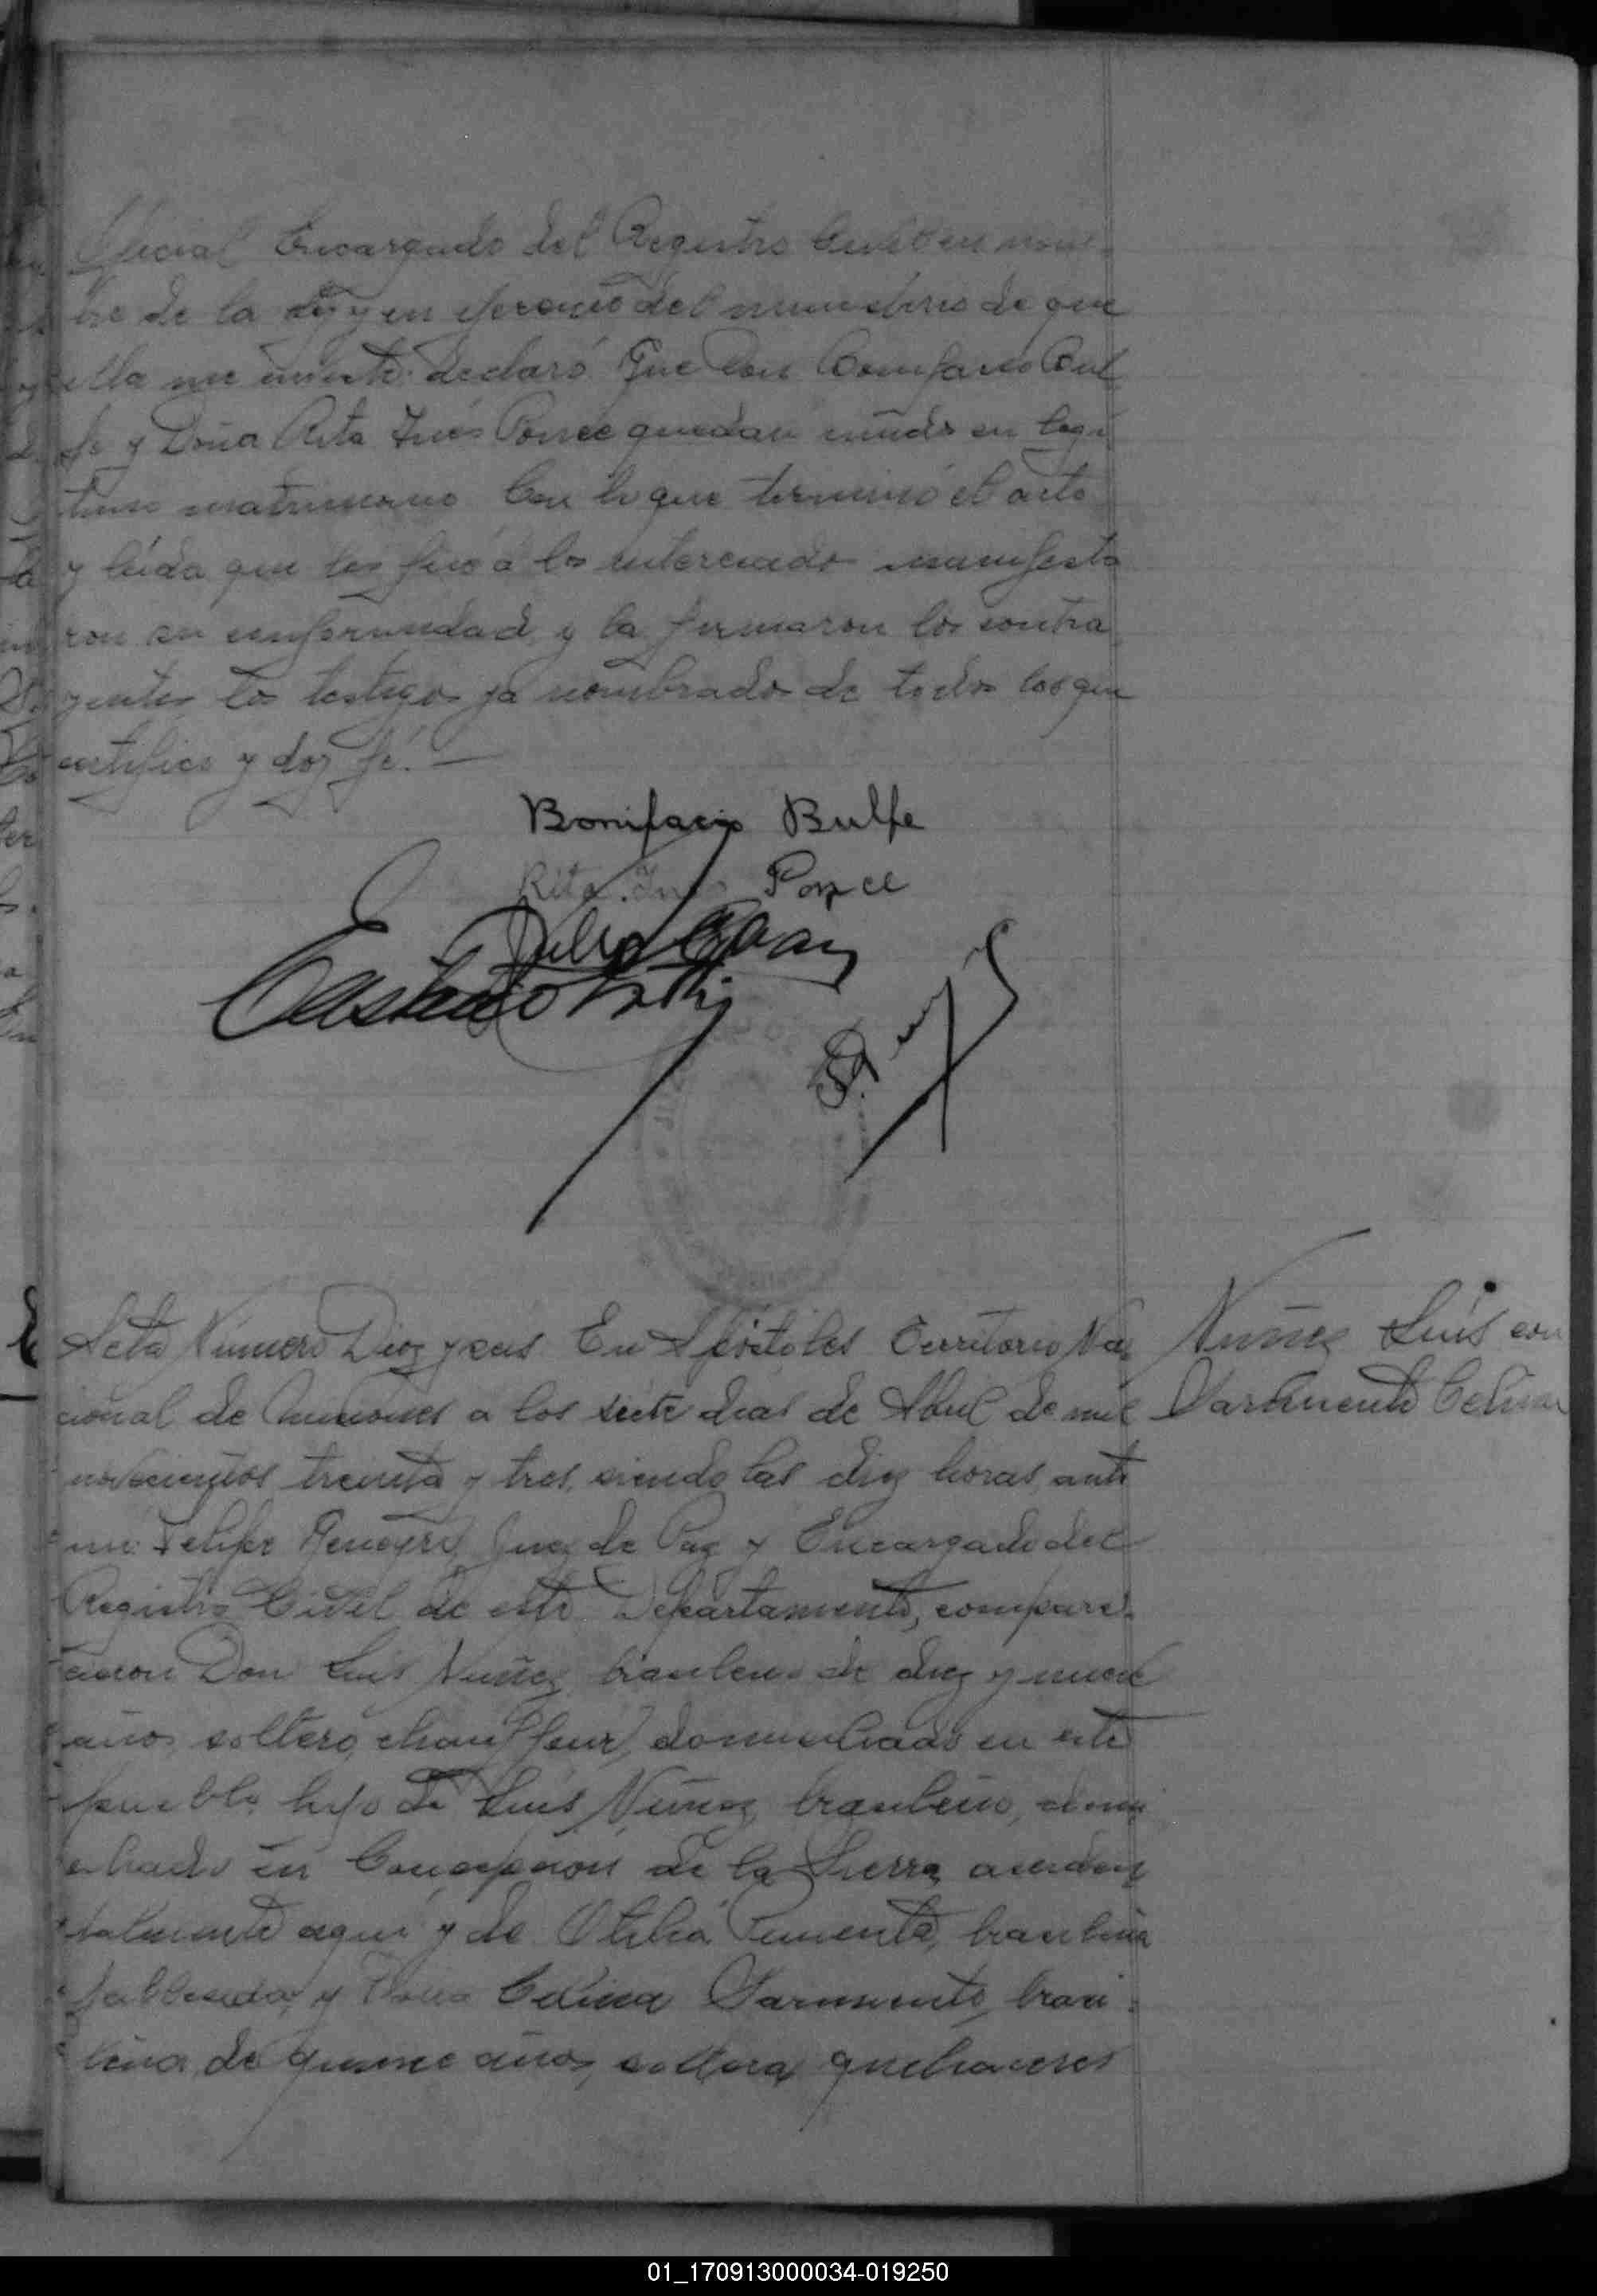 Oficial Encargado del Registro Civil en nom-
bre de la ley y en ejercicio del ministerio de que
ella me inviste declaró que Don Bonifacio Bul
fe y Doña Rita Inés Ponce quedan unidos en legi
timo matrimonio Con lo que terminó el acto
y leída que les fué á los interesados manifesta
ron su conformidad y la firmaron los contra
yentes los testigos ya nombrados de todo lo que
certifico y doy fé. —
Bonifacio Bulfe
Rita Inés Ponce
Julio
Acta Número Diez y seis En Apóstoles Territorio Na
cional de Misiones a los siete dias de Abril de mil
novecientos treinta y tres, siendo las diez horas, ante
mi Felipe Juez de Paz y Encargado del
Registro Civil de este Departamento, compare-
cieron Don Luis Nuñez brasilero de diez y nueve
años, soltero, chauffeur, domiciliado en este
pueblo, hijo de Luis Nuñez, brasilero, domi
ciliado en Concepción de la Sierra, acciden
talmente aqui y de Otilia Pimenta, brasilera
fallecida, y Doña Celina Sarmento, brasi-
lera, de quince años, soltera, quehaceres
Nuñez Luis con
Sarmento Celina
01_170913000034-019250